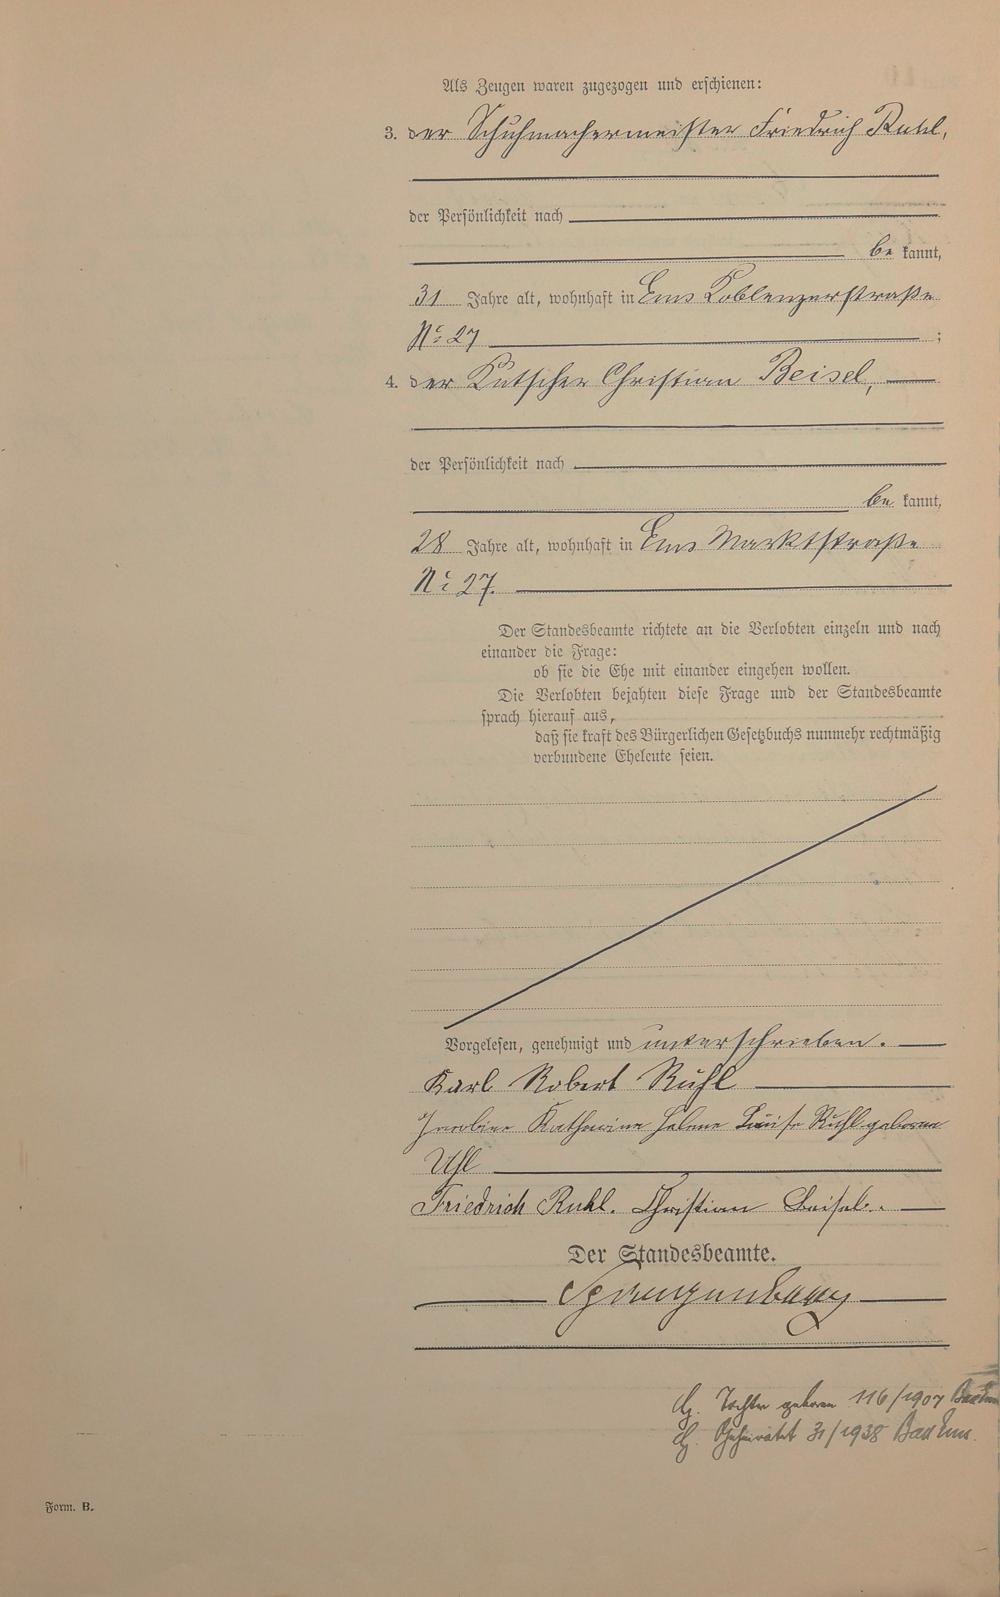 Als Zeugen waren zugezogen und erschienen:
3. der Schuhmachermeister Friedrich Ruhl,
der Persönlichkeit nach
be kannt,
31 Jahre alt, wohnhaft in Ems Koblenzerstraße
No 27 ;
4. der Kutscher Christian Beisel,
der Persönlichkeit nach
be kannt,
28 Jahre alt, wohnhaft in Ems Marktstraße
No 27.
Der Standesbeamte richtete an die Verlobten einzeln und nach
einander die Frage:
ob sie die Ehe mit einander eingehen wollen.
Die Verlobten bejahten diese Frage und der Standesbeamte
sprach hierauf aus,
daß sie kraft des Bürgerlichen Gesetzbuchs nunmehr rechtmäßig
verbundene Eheleute seien.
Vorgelesen, genehmigt und unterschrieben.
Karl Robert Ruhl
Katharina Helene Luise Ruhl geborene
Uhl
Friedrich Ruhl. Christian Beisel.
Der Standesbeamte.
Tochter geboren 116/1907 Bad Ems
Geheiratet 31/1938 Bad Ems.
Form. B.